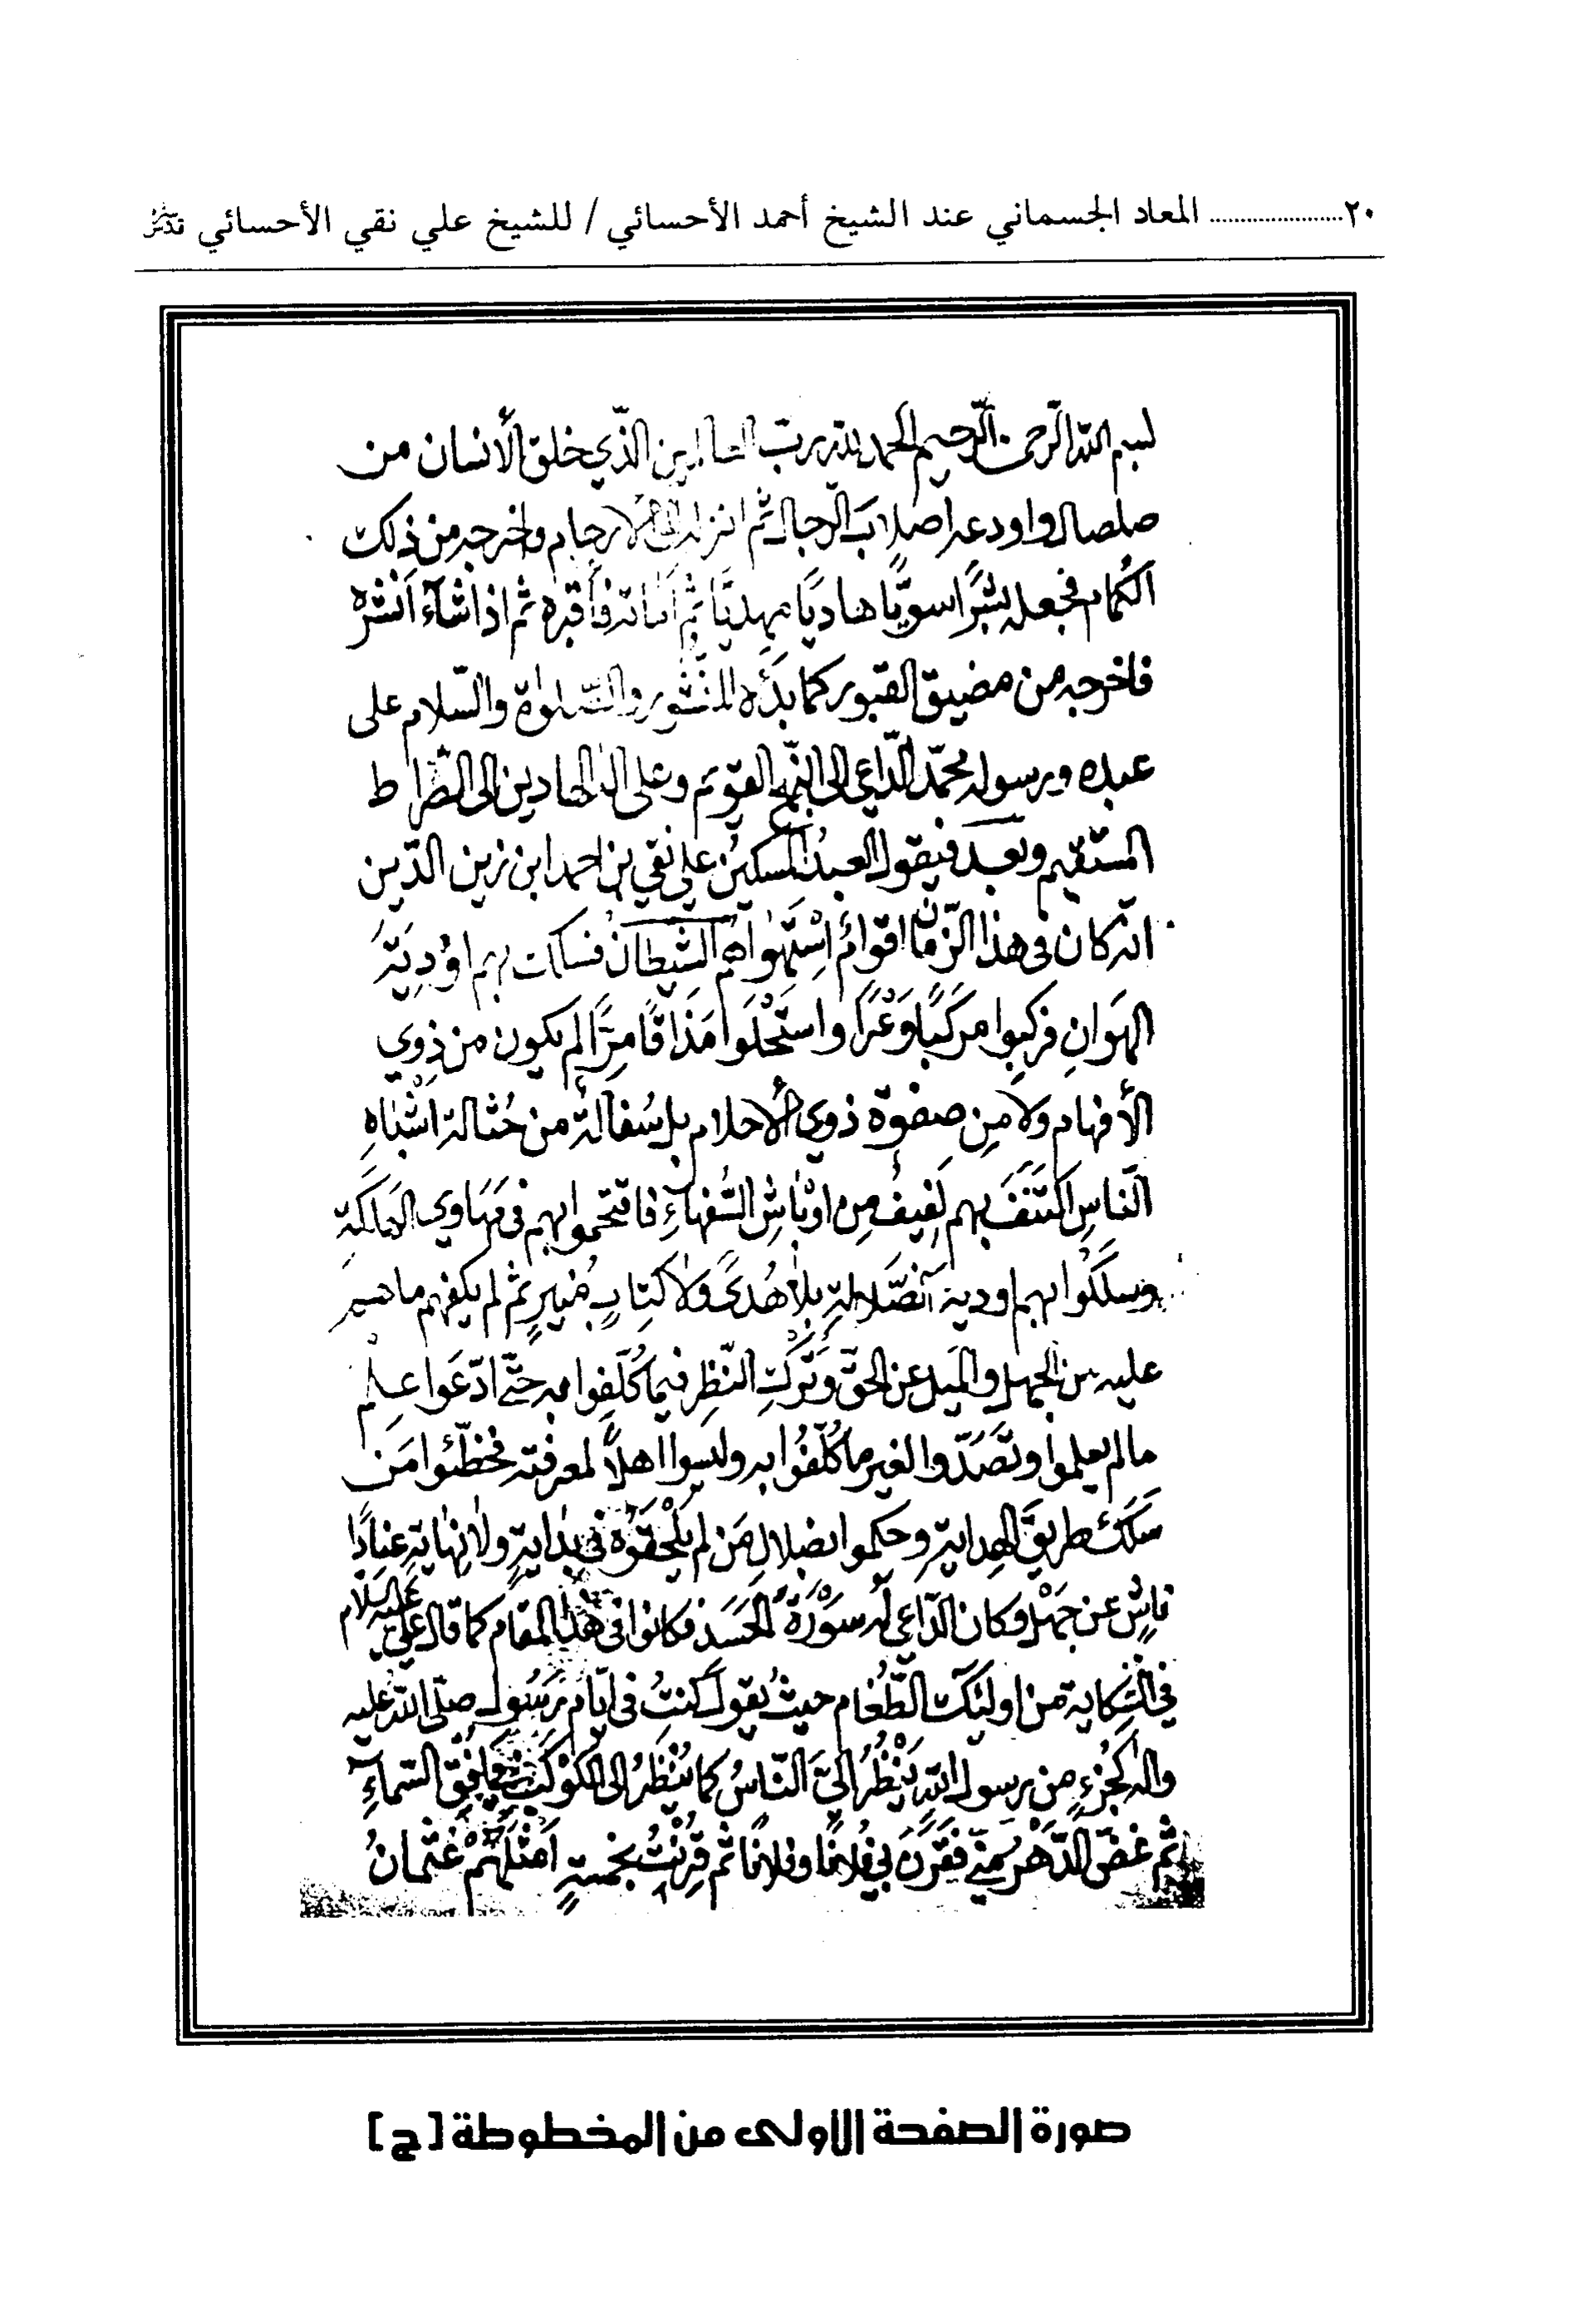 ٢٠...................... المعاد الجسماني عند الشيخ أحمد الأحسائي / للشيخ علي نقي الأحسائي
بسم الله الرحمن الرحيم الحمد لله رب العالمين الذي خلق الأنسان من
صلصال واودعه اصلاب الرجال ثم انزله الى الارحام واخرجه من ذلك
الكمام فجعله بشرًا سويًّا هاديًا مهديًّا ثم اماته فأقبره ثم اذا شآء أنشره
فاخرجه من مضيق القبور كما بدأه للنشور والصلوة والسّلام على
عبده ورسوله محمّد الدّاعي الى النهج القويم وعلى اله الهادين الى الصّراط
المستقيم وبعد فيقول العبد المسكين علي نقي بن احمد ابن زين الدّين
انّه كان فى هذا الزّمان اقوام اسْتَهْواهم الشيطان فسلكت بهم اوْدِيَةَ
الهَوانِ فركبوا مركبًا وَعْرًا واستَحْلَوا مَذَاقًا مِرًّا لم يكون من ذوي
الأفهام ولا من صفوة ذوي الأحلام بل سُفالة من حُثالة اشْباهِ
النّاسِ اكتَنَفَ بهم لَفيفٌ مِن اوْباشِ السُّفهآءِ فاقتحموا بهم فى مَهَاوي الهَلَكَةِ
وسلَكُوا بهم اودية الضّلالة بلا هُدىً ولا كتابٍ مُنيرٍ ثم لم يكفهم ما هم
عليه من الجهل والمَيل عن الحقّ وتَرْكِ النّظر فيما كُلّفوا به حتّى ادّعَوا عِلْم
مالم يعلموا وتَصَدّوا لغير ما كُلّفُوا به وليسوا اهلاً لمعرفته فخطّئوا مَن
سَلَكَ طريقَ الهداية وحكموا بضلالِ مَن لم يَلْحَقوُه فى بداية ولا نهاية عنادًا
ناشٍ عن جَهْل وكان الدّاعي له سَوْرَةُ الحَسَد فكانوا فى هذا المقام كما قال علي عليه السلام
في الشكاية من اولئك الطّغام حيث يقول كنتُ فى ايّام رَسُول صلى الله عليه
واله كجُزءٍ من رسول الله يَنْظُرُ اِلَيَّ النّاسُ كما يُنْظَرُ الى الكَوْكَب في افق السّماءِ
ثم غضّ الدّهْر منّي فقَرَنَ بي فلانًا وفلانًا ثم قُرِنْتُ بخمسةٍ اَمْثَلُهُمْ عُثمانُ
صورة الصفحة الأولى من المخطوطة [ج]